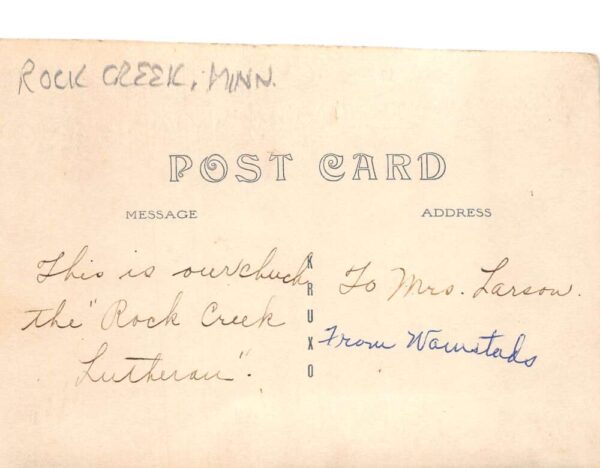 ROCK CREEK, MINN.
POST CARD
MESSAGE
ADDRESS
This is our chuch
the "Rock Creek
Lutheran".
KRUXO
To Mrs. Larson.
From